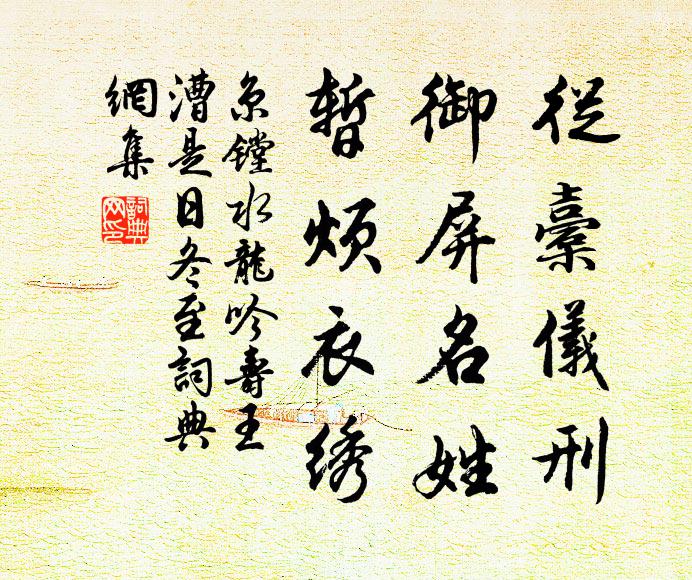 從橐儀刑
御屏名姓
暫煩衣绣
京鏜水龍吟壽王
漕是日冬至詞典
網集
詞典網印